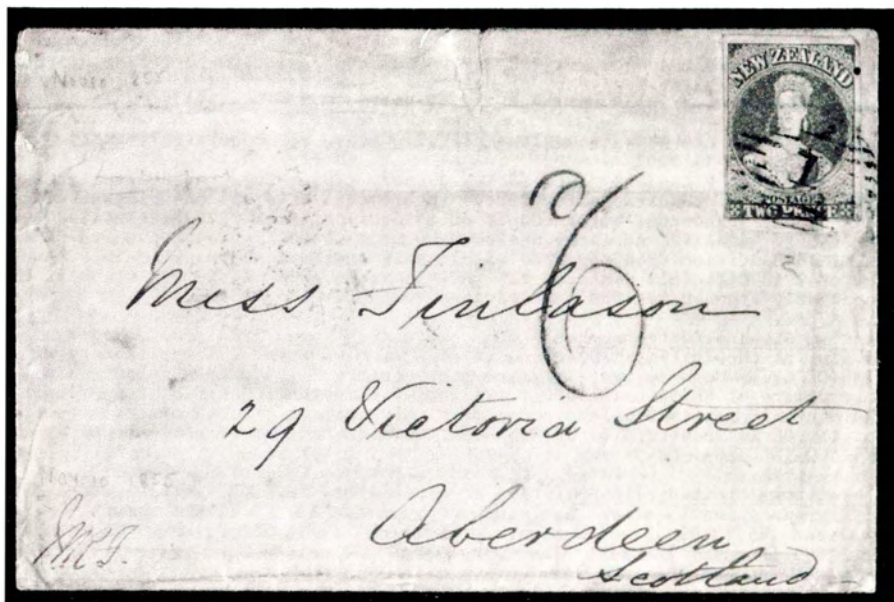 NEW ZEALAND
POSTAGE
TWO PENCE
6
Miss Finlason
29 Victoria Street
Aberdeen
Scotland